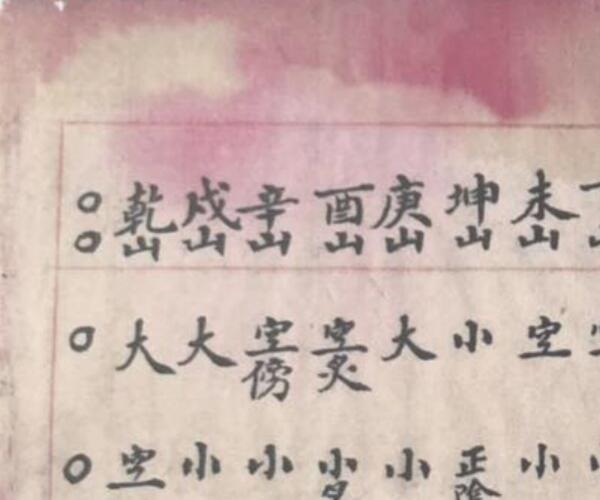 ○ 乾 戍 辛 酉 庚 坤 未
○ 山 山 山 山 山 山 山
○ 大 大 空 空 大 小 空
傍 炙
○ 空 小 小 小 小 正 小